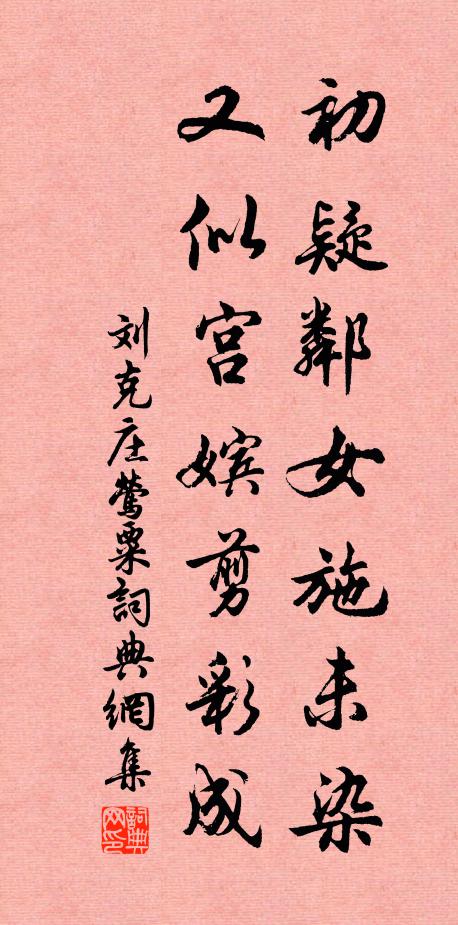 初疑鄰女施未染
又似宫嬪剪彩成
刘克庄鶯粟詞典網集
詞典网印